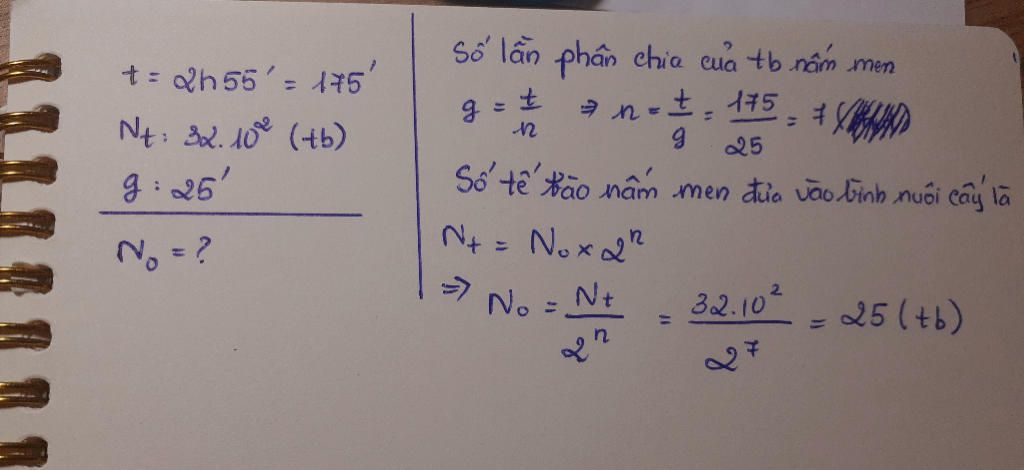 t = 2h55' = 175'
Nt: 32.10² (tb)
g: 25'
N₀ = ?
Số lần phân chia của tb nấm men
g = t/n ⇒ n = t/g = 175/25 = 7
Số tế bào nấm men đưa vào bình nuôi cấy là
Nt = N₀ × 2ⁿ
⇒ N₀ = Nt/2ⁿ = 32.10²/2⁷ = 25 (tb)